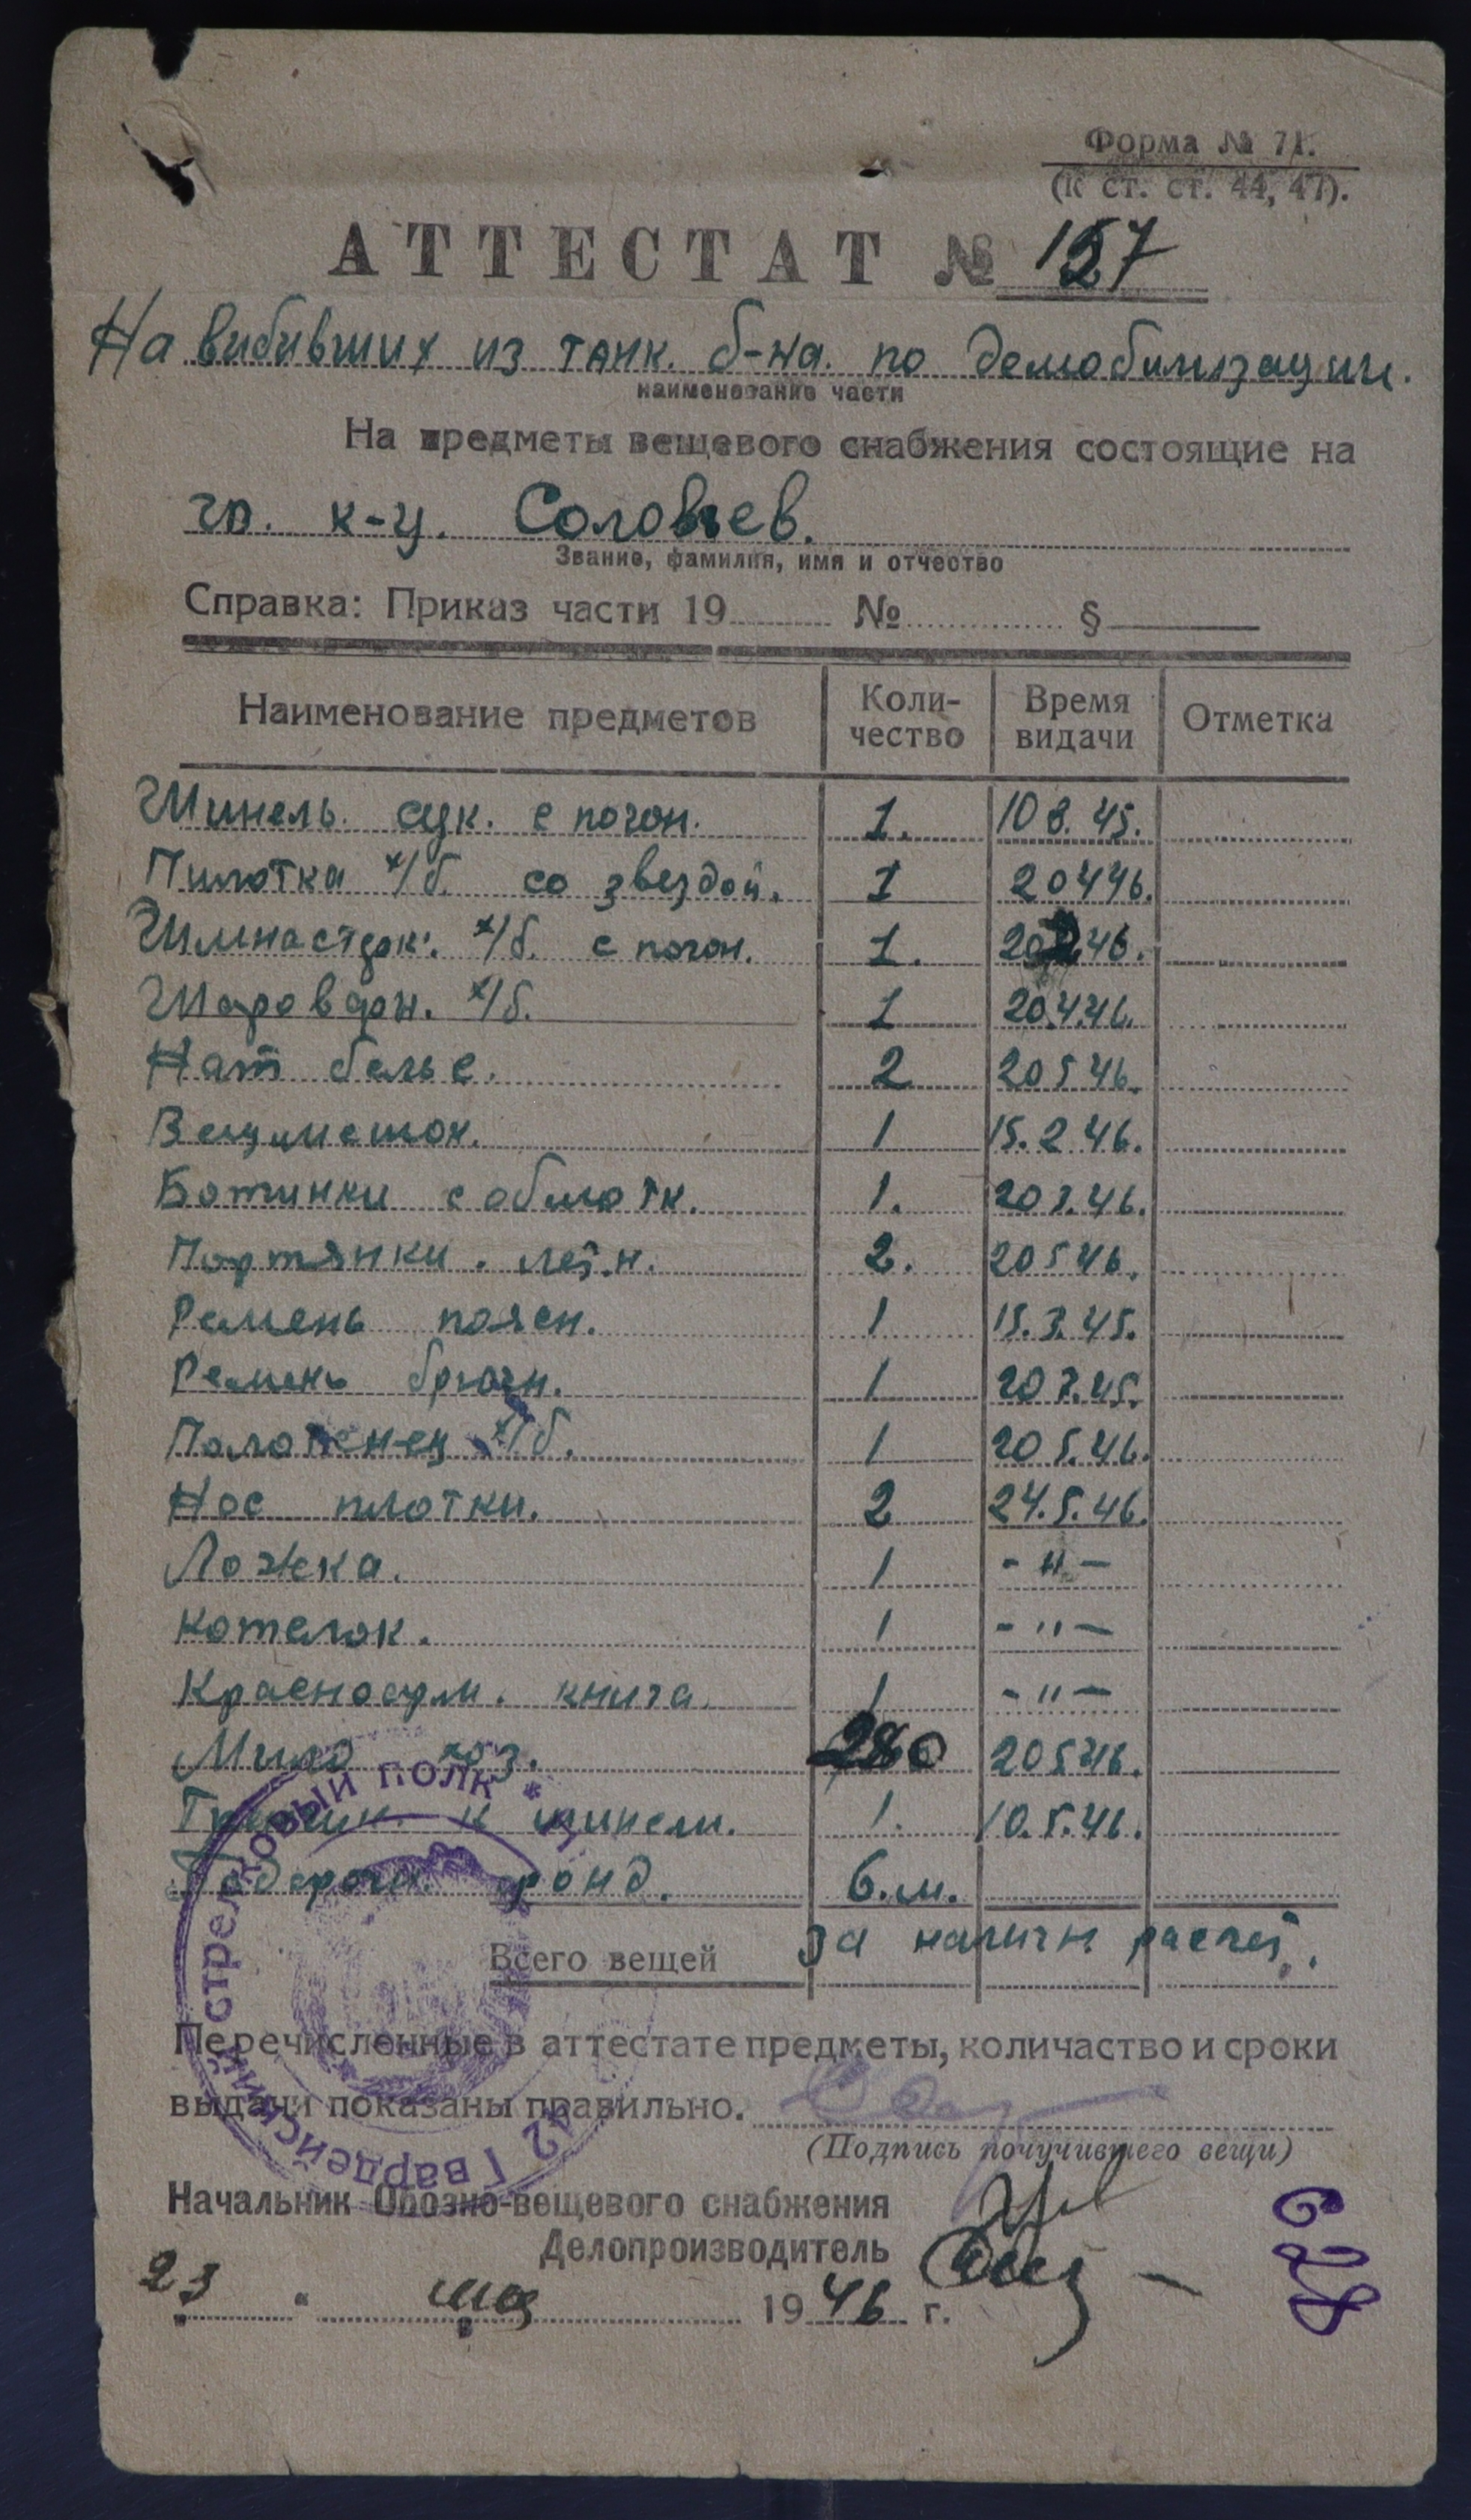 Форма № 71.
(К ст. ст. 44, 47).
АТТЕСТАТ № 157
На вибивших из танк. б-на. по демобилизации.
наименование части
На предметы вещевого снабжения состоящие на
гв. к-ц. Соловьев.
Звание, фамилия, имя и отчество
Справка: Приказ части 19 № §
Наименование предметов Коли-чество Время видачи Отметка
Шинель. сук. с погон. 1. 10 3. 45.
Пилотка х/б. со звездой. 1 20 4 46.
Гимнастерк. х/б. с погон. 1. 46.
Шаровар. х/б. 1 20.4.46.
Нат белье. 2 20 5 46.
Вещмешок. 1 15. 2 46.
Ботинки с обмотк. 1. 20 3. 46.
Портянки. летн. 2. 20 5 46.
Ремень поясн. 1 15. 3. 45.
Ремень брючн. 1 20 3. 45.
Полотенец х/б. 1 20 5. 46.
Нос платки. 2 24. 5. 46.
Ложка. 1 - " -
Котелок. 1 - " -
Красноарм. книга. 1 - " -
Мило хоз. 280 20 5 46.
к шинели. 1. 10. 5. 46.
6. м.
Всего вещей За наличн. расчет.
Перечисленные в аттестате предметы, количаство и сроки
выдачи показаны правильно.
(Подпись почучившего вещи)
Начальник Обозно-вещевого снабжения
Делопроизводитель
23 " мая 1946 г.
628
12 Гвардейский стрелковый полк *